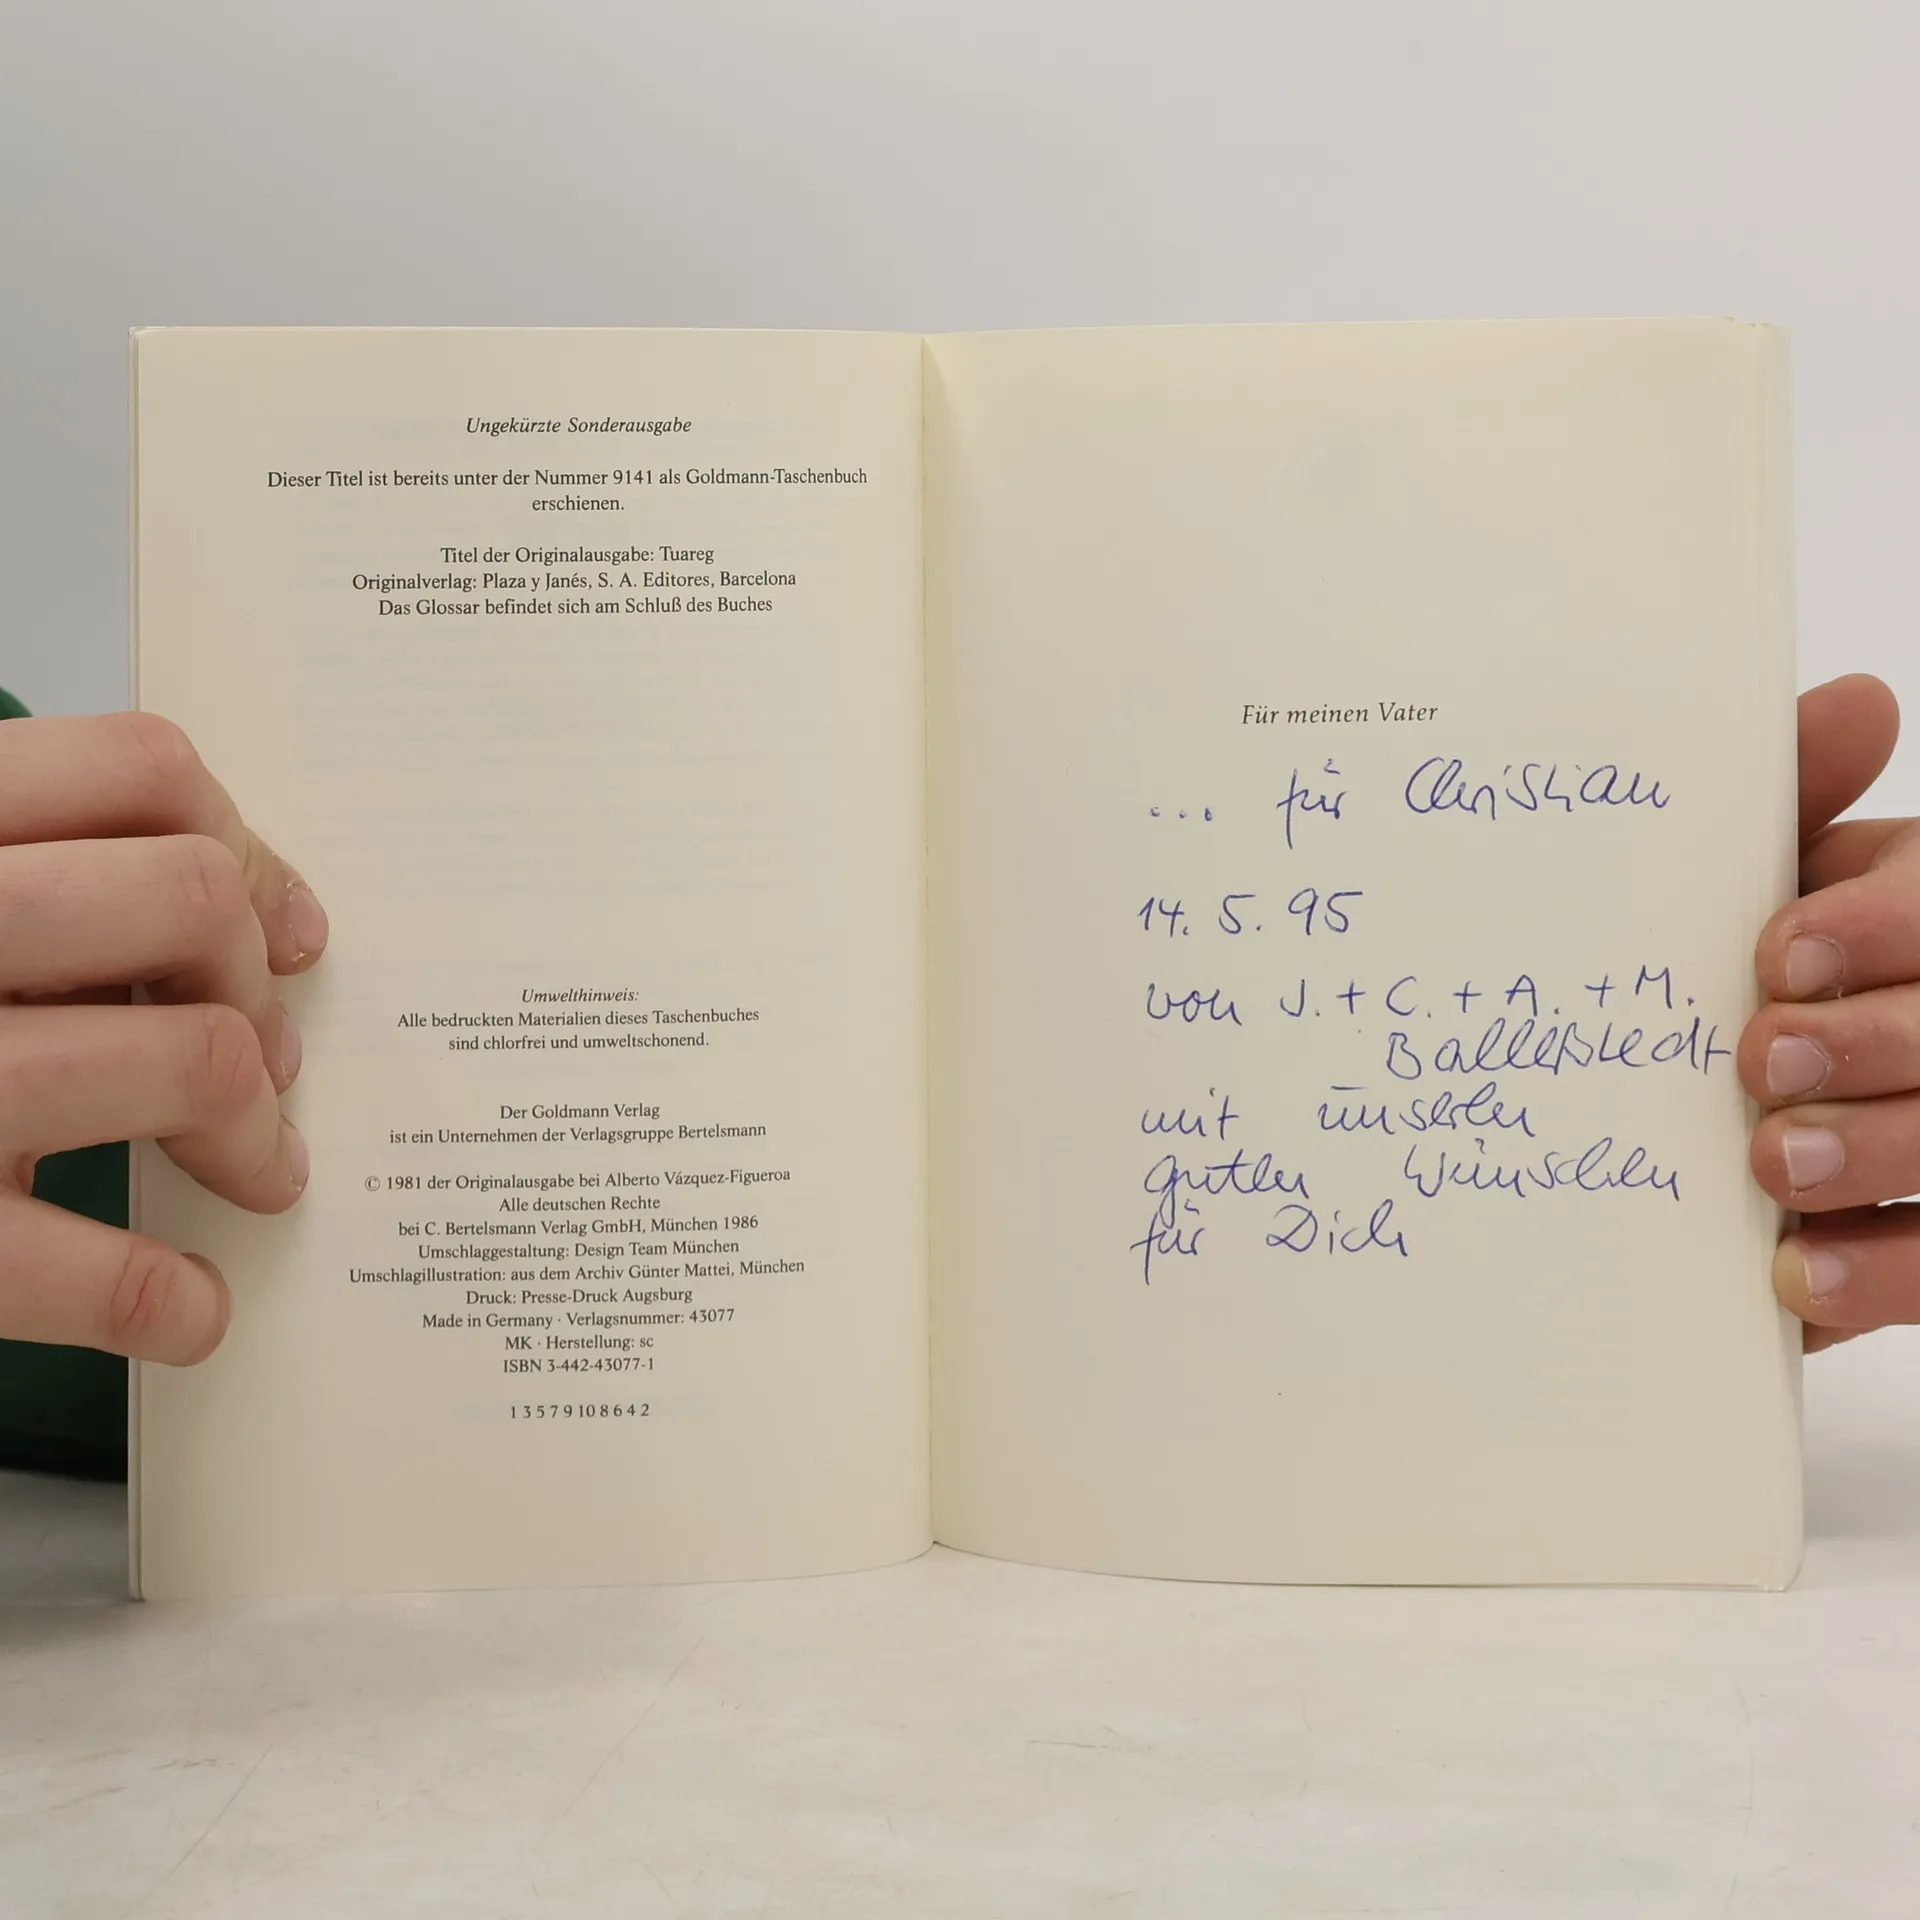 Ungekürzte Sonderausgabe
Dieser Titel ist bereits unter der Nummer 9141 als Goldmann-Taschenbuch
erschienen.
Titel der Originalausgabe: Tuareg
Originalverlag: Plaza y Janés, S. A. Editores, Barcelona
Das Glossar befindet sich am Schluß des Buches
Umwelthinweis:
Alle bedruckten Materialien dieses Taschenbuches
sind chlorfrei und umweltschonend.
Der Goldmann Verlag
ist ein Unternehmen der Verlagsgruppe Bertelsmann
© 1981 der Originalausgabe bei Alberto Vázquez-Figueroa
Alle deutschen Rechte
bei C. Bertelsmann Verlag GmbH, München 1986
Umschlaggestaltung: Design Team München
Umschlagillustration: aus dem Archiv Günter Mattei, München
Druck: Presse-Druck Augsburg
Made in Germany · Verlagsnummer: 43077
MK · Herstellung: sc
ISBN 3-442-43077-1
1 3 5 7 9 10 8 6 4 2
Für meinen Vater
... für Christian
14. 5. 95
von J. + C. + A. + M.
mit unseren
guten Wünschen
für Dich